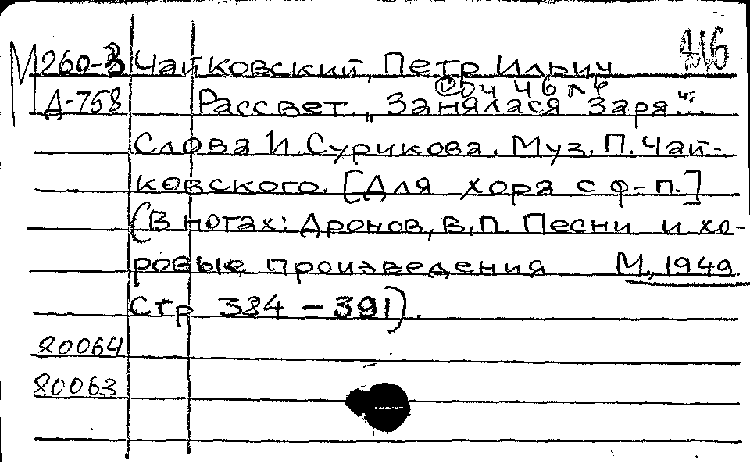 416
М260-3 Чайковский, Петр Ильич
Соч 46 № 6
Д-758 Рассвет. „Занялася заря“...
Слова И. Сурикова. Муз. П. Чай-
ковского. [Для хора с ф-п.]
(В нотах: Дронов, В.П. Песни и хо-
ровые произведения М, 1949
Стр 384 - 391).
80064
80063